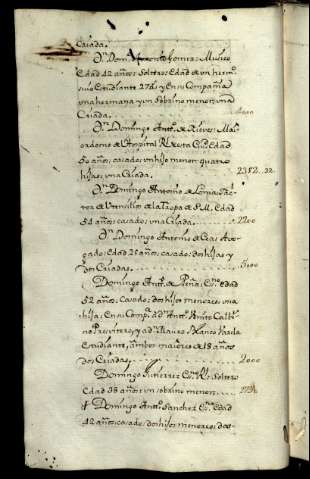 Criada.
Dn. Domo. Vizente Gomez Musico
Edad 42 años Soltero Edad de un herm.
suio Estudiante 27as y En su Compañia
una hermana y un Sobrino menor, una
Criada
Dn. Domingo Anto. de Nieves Ma
iordomo de Hospital Rl. desta Ciud. Edad
50 años, casado, un hijo menor, quatro
hijas, una Criada. 2352.. 32
Dn. Domingo Antonio de
de Utensilios de la Tropa de S.M. Edad
54 años casado, una Criada. 2200
Dn. Domingo Antonio de Abo
gado Edad 25 años, casado, dos hijas y
dos Criadas. 5100
Domingo Anto. de Peña, Edad
52 años, Casado, dos hijos menores, una
hija, En su Comp.a dn. Anto.
Presvitero, y a dn. Mauro Blanco
Estudiante, ambos maiores de 18 años
dos Criadas. 2000
Domingo Gutierrez Soltero
Edad 38 años un sobrino menor.
Domingo Anto. Sanchez Edad
42 años, casado, dos hijos menores, dos